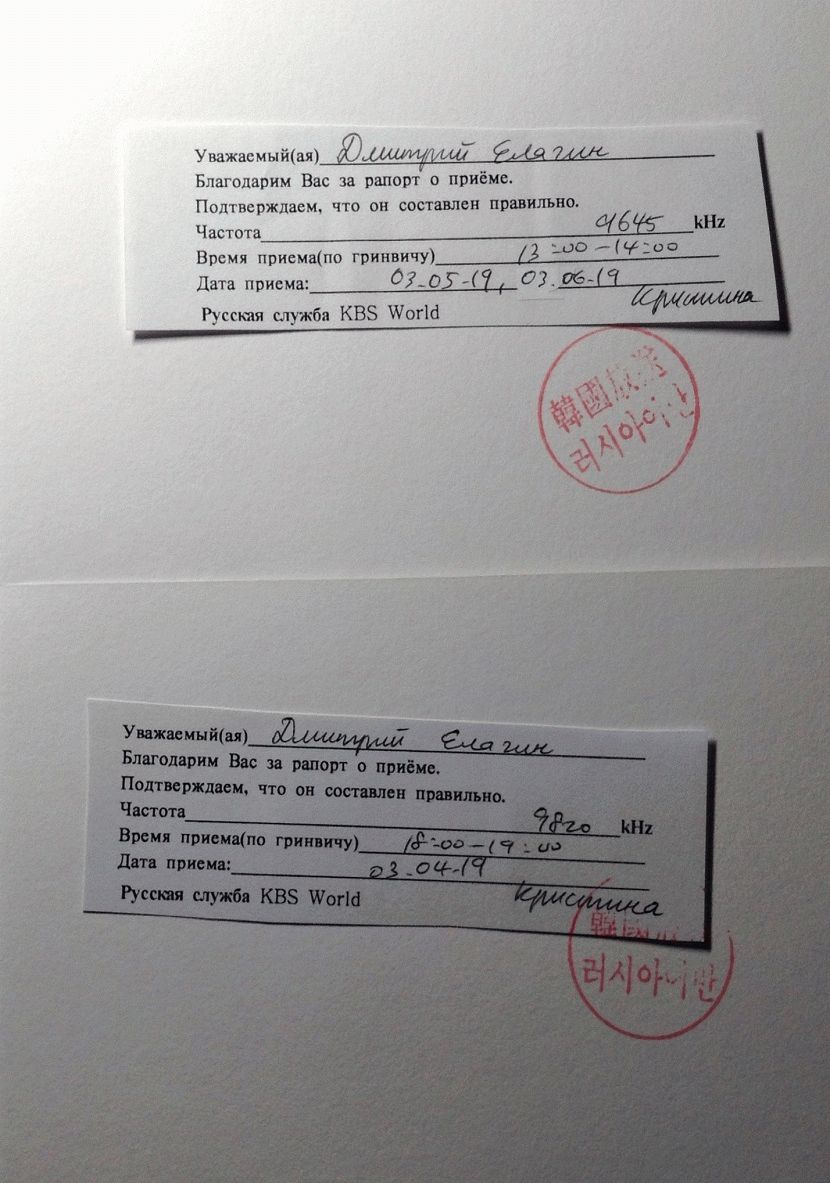 Уважаемый(ая) Дмитрий Елагин
Благодарим Вас за рапорт о приёме.
Подтверждаем, что он составлен правильно.
Частота 9645 kHz
Время приема(по гринвичу) 13:00-14:00
Дата приема: 03-05-19, 03.06-19
Кристина
Русская служба KBS World
韓國放送
러시아어반
Уважаемый(ая) Дмитрий Елагин
Благодарим Вас за рапорт о приёме.
Подтверждаем, что он составлен правильно.
Частота 9820 kHz
Время приема(по гринвичу) 18:00-19:00
Дата приема: 03-04-19
Кристина
Русская служба KBS World
韓國
러시아어반